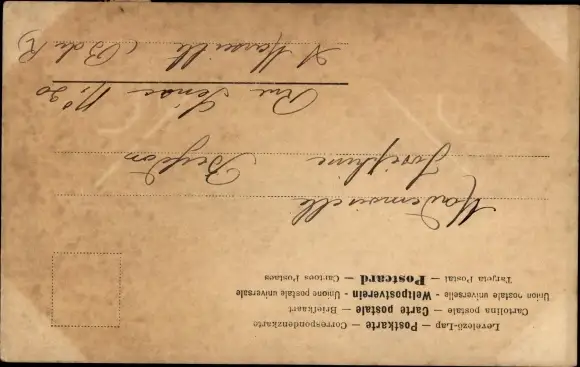 Levelező-Lap — Postkarte — Correspondenzkarte
Cartolina postale — Carte postale — Briefkaart
Union postale universelle - Weltpostverein - Unione postale universale
Tarjeta Postal — Postcard — Cartoes Postaes
Mademoiselle
Joséphine
Rue Sénac N: 20
A Marseille (B du R)